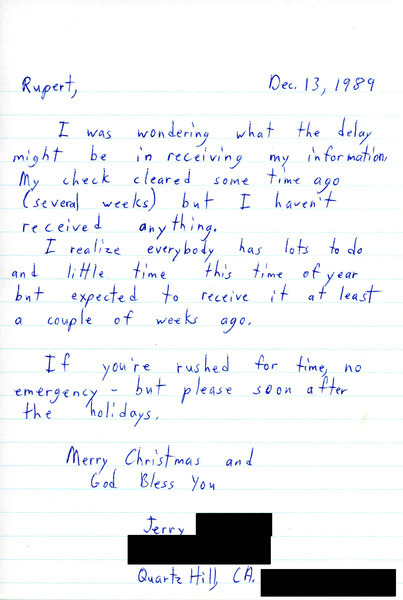 Rupert, Dec. 13, 1989
I was wondering what the delay
might be in receiving my information.
My check cleared some time ago
(several weeks) but I haven't
received anything.
I realize everybody has lots to do
and little time this time of year
but expected to receive it at least
a couple of weeks ago.
If you're rushed for time, no
emergency - but please soon after
the holidays.
Merry Christmas and
God Bless You
Jerry
Quartz Hill, CA.